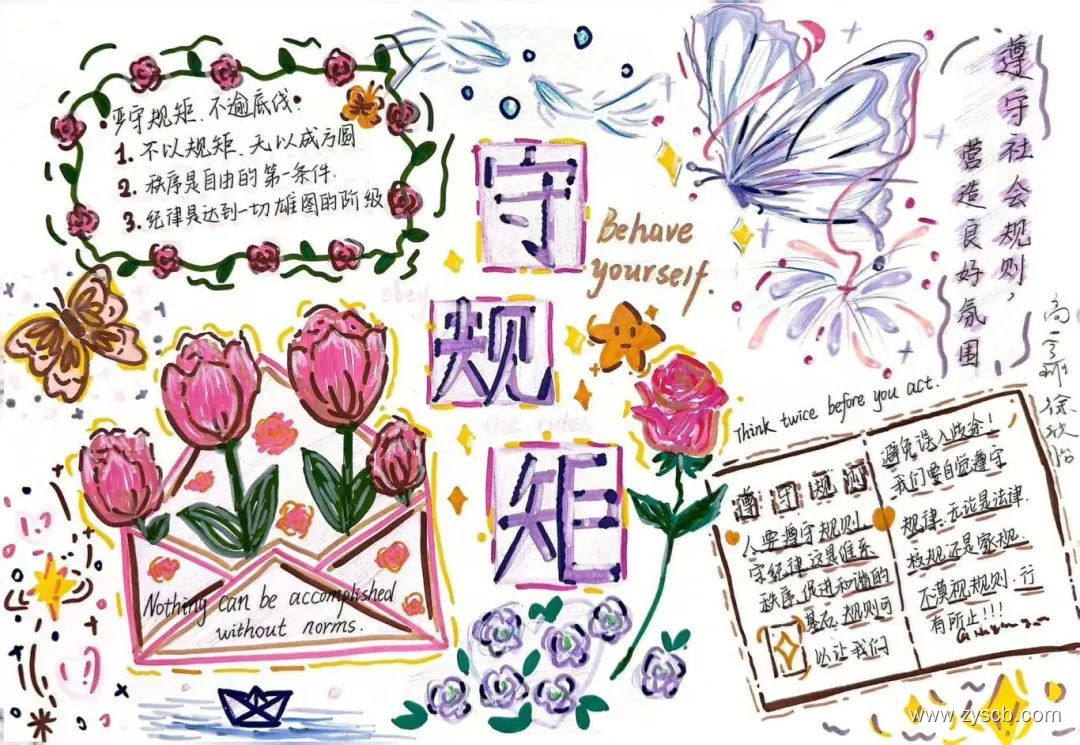 严守规矩.不逾底线.
1. 不以规矩.无以成方圆
2. 秩序是自由的第一条件.
3. 纪律是达到一切雄图的阶级
守
规
矩
Behave
yourself.
遵守社会规则,
营造良好氛围
Nothing can be accomplished
without norms.
Think twice before you act.
遵守规则
人要遵守规则
守纪律.这是维系
秩序.促进和谐的
基石.规则可
以让我们
避免误入歧途!
我们要自觉遵守
规律.无论是法律.
校规还是家规.
不漠视规则.行
有所止!!!
www.zyscb.com